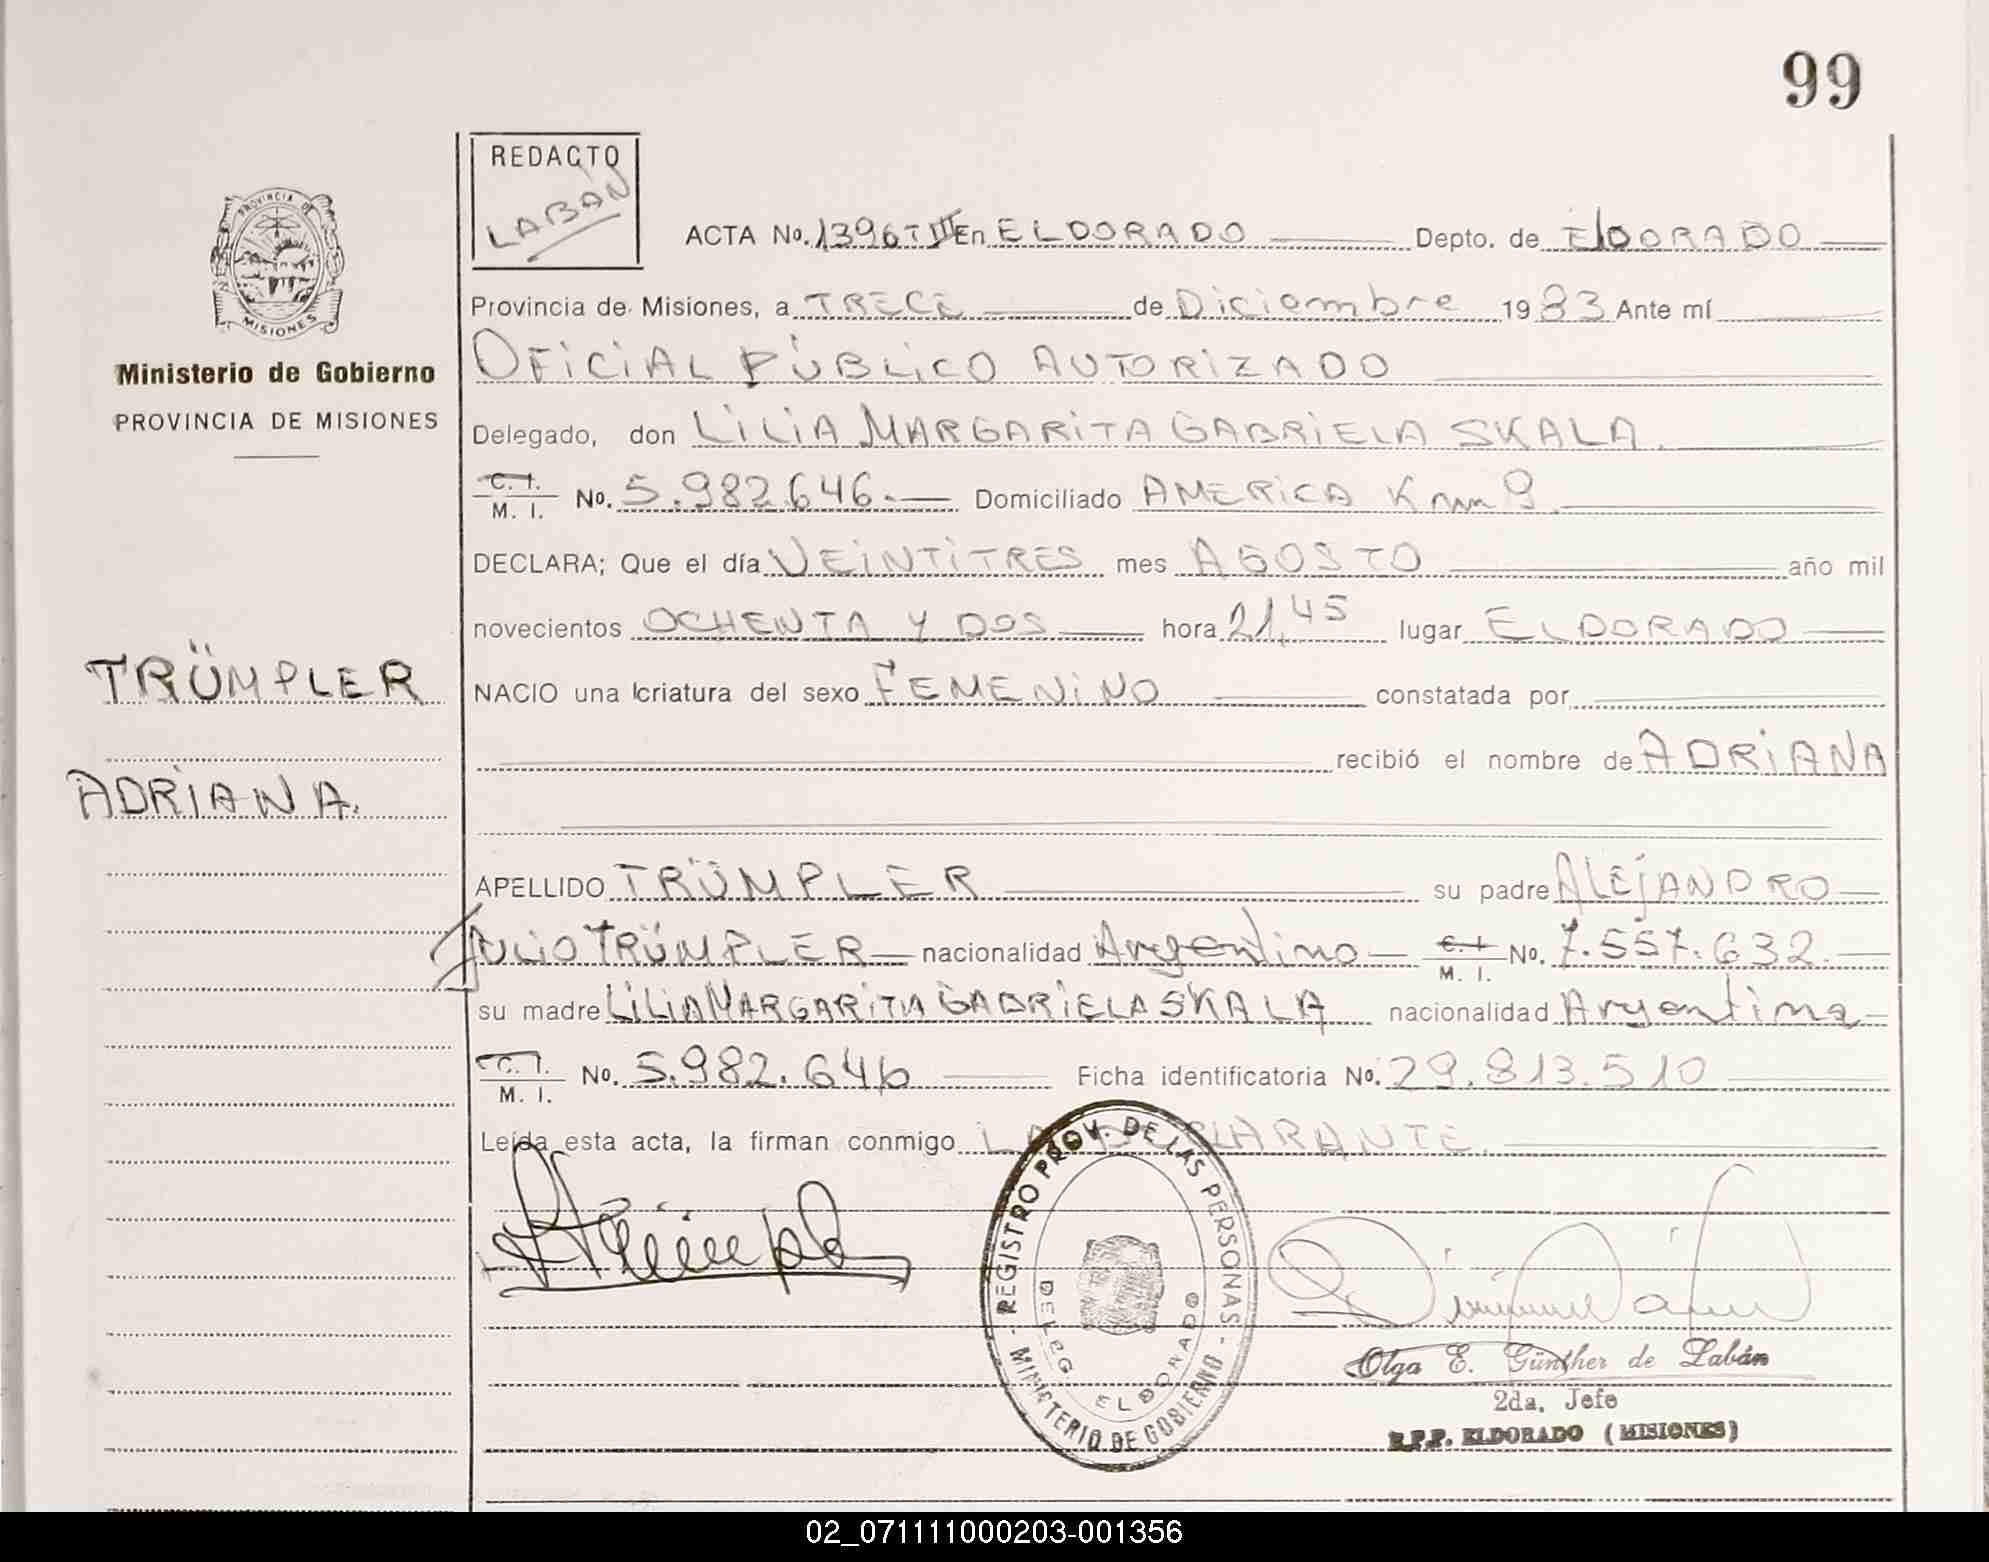 99
REDACTO
LABAN
PROVINCIA DE
MISIONES
Ministerio de Gobierno
PROVINCIA DE MISIONES
TRÜMPLER
ADRIANA.
ACTA No. 1396 T III En ELDORADO Depto. de ElDORADO
Provincia de Misiones, a TRECE de Diciembre 1983 Ante mí
OFICIAL PÚBLICO AUTORIZADO
Delegado, don LILIA MARGARITA GABRIELA SKALA.
C. I.
M. I. No. 5.982.646.- Domiciliado AMERICA Km 9.
DECLARA; Que el día VEINTITRES mes AGOSTO año mil
novecientos OCHENTA Y DOS hora 21,45 lugar ELDORADO
NACIO una criatura del sexo FEMENINO constatada por
recibió el nombre de ADRIANA
APELLIDO TRÜMPLER su padre ALEJANDRO
JULIO TRÜMPLER nacionalidad Argentino C. I.
M. I. No. 7.557.632.
su madre LILIA MARGARITA GABRIELA SKALA nacionalidad Argentina
C. I.
M. I. No. 5.982.646 Ficha identificatoria No. 29.813.510
Leída esta acta, la firman conmigo LA DECLARANTE.
- REGISTRO PROV. DE LAS PERSONAS -
MINISTERIO DE GOBIERNO
DELEG. ELDORADO
Olga E. Günther de Labán
2da. Jefe
R.P.P. ELDORADO (MISIONES)
02_071111000203-001356